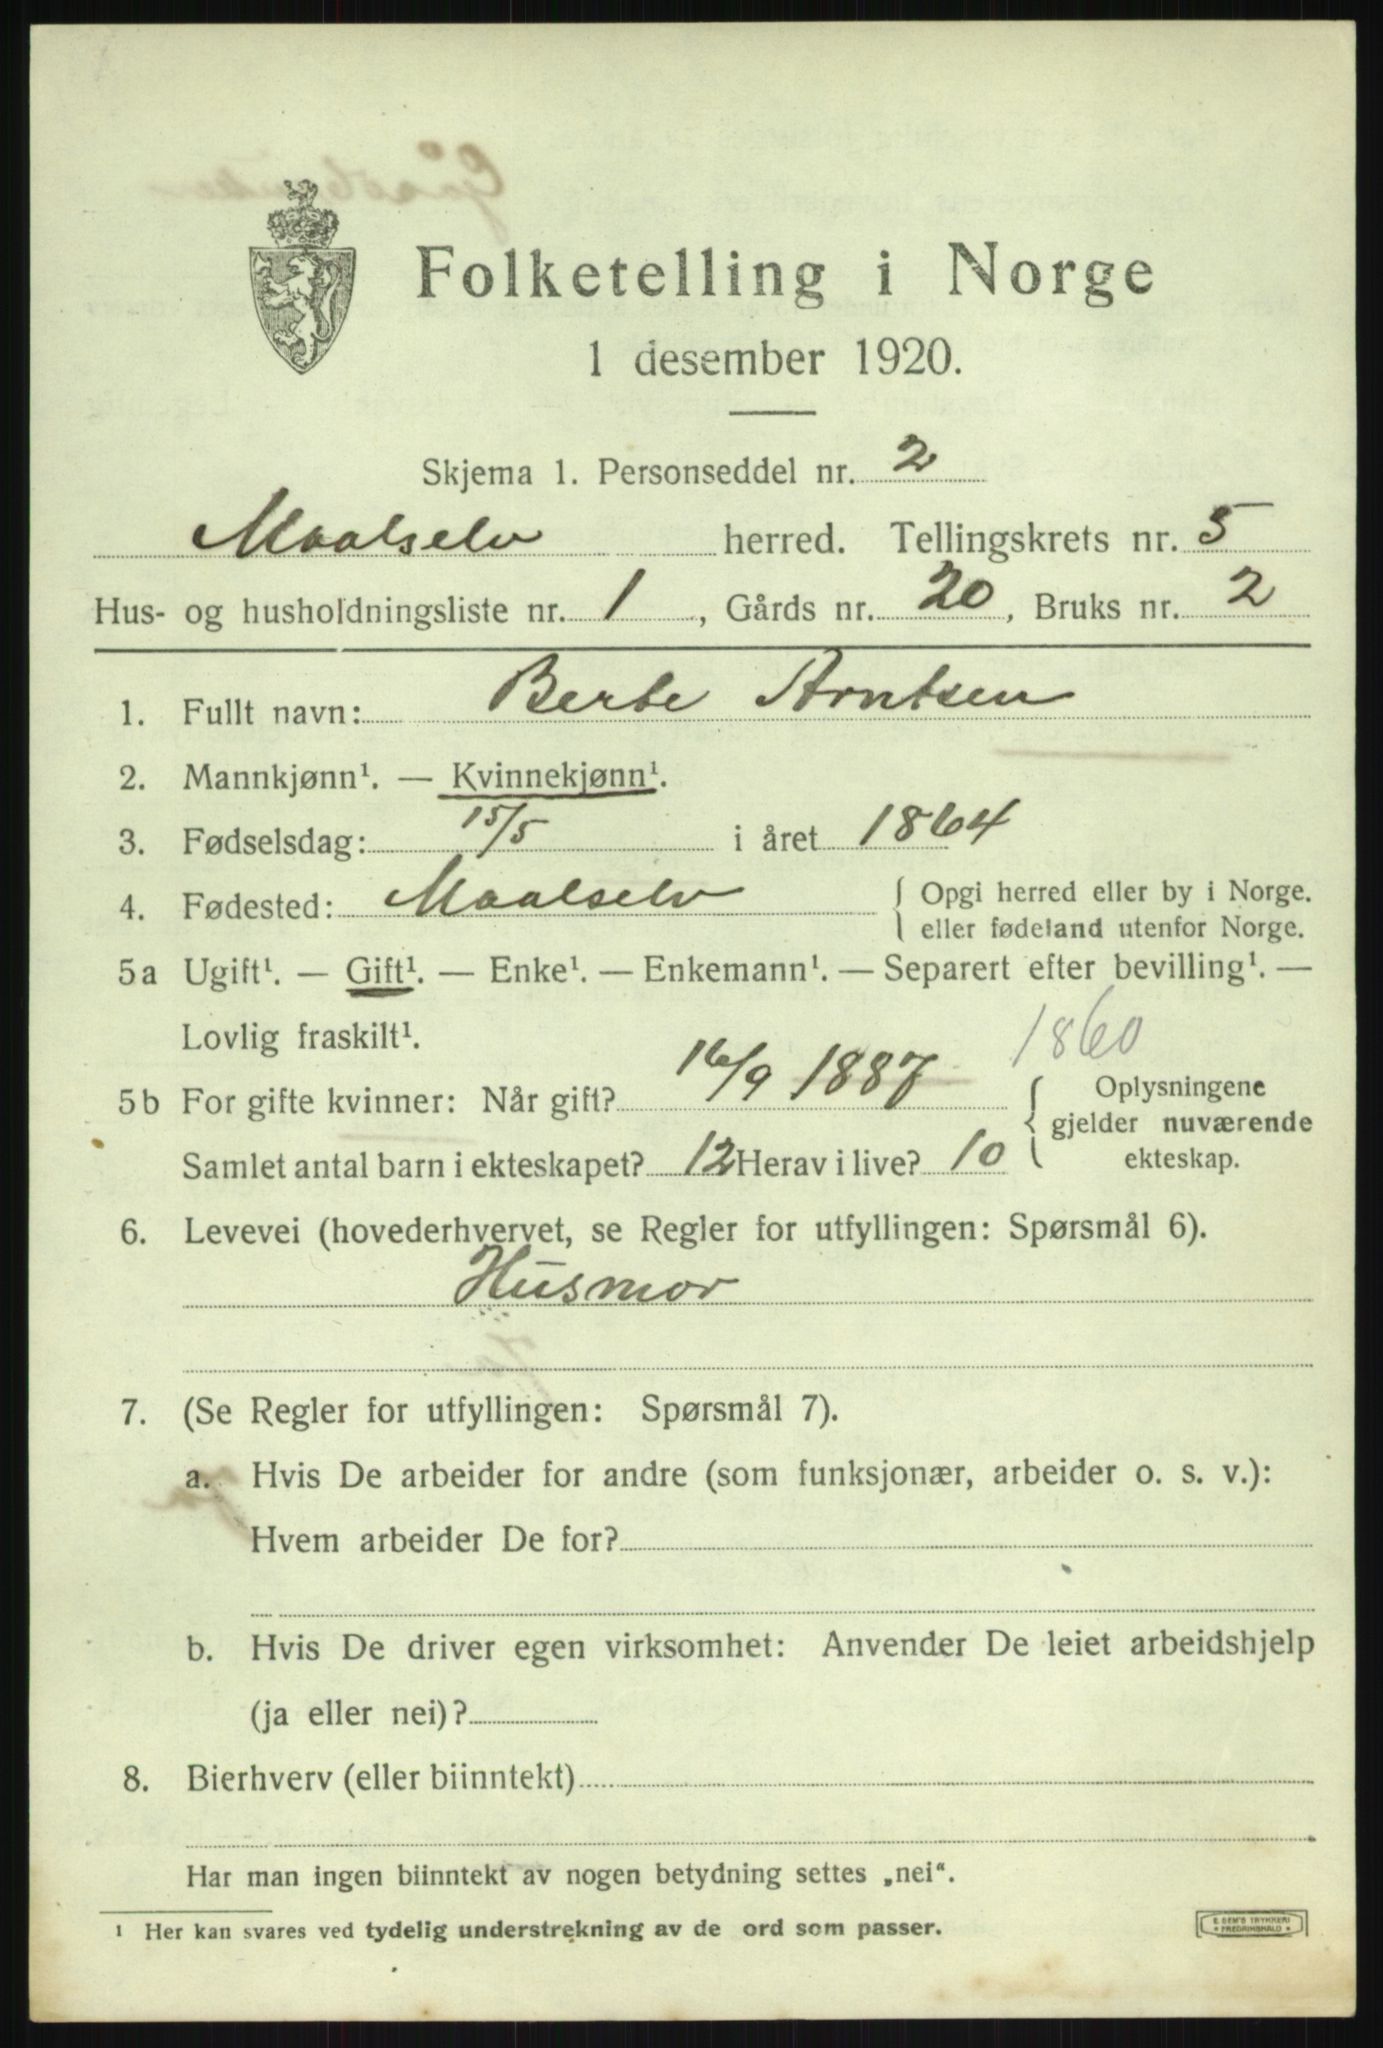 Folketelling i Norge
1 desember 1920.
Skjema 1. Personseddel nr. 2
Maalselv herred. Tellingskrets nr. 5
Hus- og husholdningsliste nr. 1, Gårds nr. 20, Bruks nr. 2
1. Fullt navn: Berte Arntsen
2. Mannkjønn¹. — Kvinnekjønn¹.
3. Fødselsdag: 15/5 i året 1864
4. Fødested: Maalselv { Opgi herred eller by i Norge.
eller fødeland utenfor Norge.
5a Ugift¹. — Gift¹. — Enke¹. — Enkemann¹. — Separert efter bevilling¹. —
Lovlig fraskilt¹. 1860
5b For gifte kvinner: Når gift? 16/9 1887 { Oplysningene
gjelder nuværende
Samlet antal barn i ekteskapet? 12 Herav i live? 10 ekteskap.
6. Levevei (hovederhvervet, se Regler for utfyllingen: Spørsmål 6).
Husmor
7. (Se Regler for utfyllingen: Spørsmål 7).
a. Hvis De arbeider for andre (som funksjonær, arbeider o. s. v.):
Hvem arbeider De for?
b. Hvis De driver egen virksomhet: Anvender De leiet arbeidshjelp
(ja eller nei)?
8. Bierhverv (eller biinntekt)
Har man ingen biinntekt av nogen betydning settes „nei“.
¹ Her kan svares ved tydelig understrekning av de ord som passer.
E. SEM'S TRYKKERI
• FREDRIKSHALD •